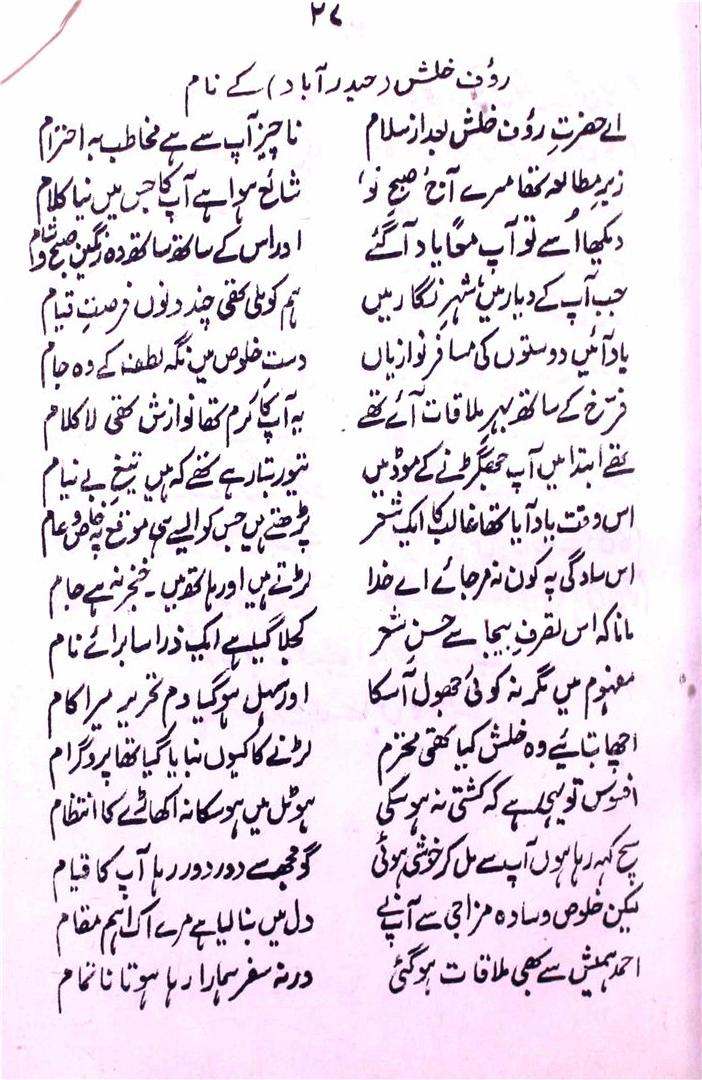 ۲۷
رؤف خلش (حیدرآباد) کے نام
اے حضرتِ رؤف خلش بعد از سلام ناچیز آپ سے ہے مخاطب بہ احترام
زیرِ مطالعہ تھا مرے آج ’صبحِ نو‘ شائع ہوا ہے آپ کا جس میں نیا کلام
دیکھا اُسے تو آپ معًا یاد آگئے اور اس کے ساتھ ساتھ وہ رنگین صبح و شام
جب آپ کے دیار میں، شہرِ نگار میں ہم کو ملی تھی چند دنوں فرصتِ قیام
یاد آئیں دوستوں کی مسافر نوازیاں دستِ خلوص میں نگہ لطف کے وہ جام
فرّخ کے ساتھ بہرِ ملاقات آئے تھے یہ آپ کا کرم تھا نوازش تھی لا کلام
تھے ابتدا میں آپ جھگڑنے کے موڈ میں تیور بتا رہے تھے کہ ہیں تیغِ بے نیام
اس وقت یاد آیا تھا غالب کا ایک شعر پڑھتے ہیں جس کو ایسے ہی موقع پہ خاص و عام
اس سادگی پہ کون نہ مر جائے اے خدا لڑتے ہیں اور ہاتھ میں۔ خنجر نہ ہے جام
مانا کہ اس تصرفِ بیجا سے حسنِ شعر کجلا گیا ہے ایک ذرا سا برائے نام
مفہوم میں مگر نہ کوئی جھول آسکا اور سہل ہوگیا دمِ تحریر میرا کام
اچھا بتائیے وہ خلش کیا تھی محترم لڑنے کا کیوں بنایا گیا تھا پروگرام
افسوس تو یہی ہے کہ کشتی نہ ہوسکی ہوٹل میں ہوسکا نہ اکھاڑے کا انتظام
سچ کہہ رہا ہوں آپ سے مل کر خوشی ہوئی گو مجھ سے دور دور رہا آپ کا قیام
لیکن خلوص و سادہ مزاجی سے آپ نے دل میں بنا لیا ہے مرے اک اہم مقام
احمد ہمیش سے بھی ملاقات ہوگئی ورنہ سفر ہمارا رہا ہوتا ناتمام